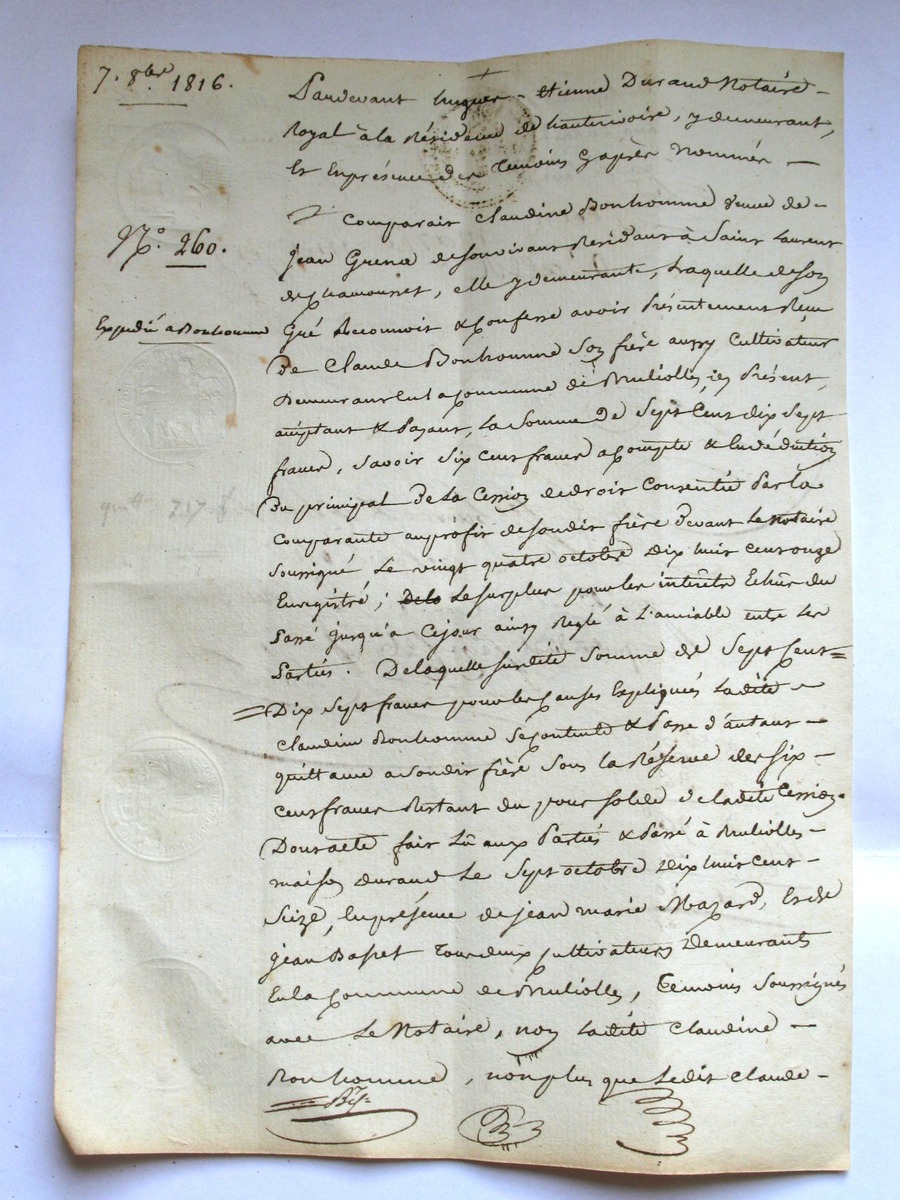 7. 8bre 1816.
N.° 260.
Expédié a Bonhomme
quitt. 717 f
Pardevant hugues - Etienne Durand Notaire -
Royal à la Résidence de hauterivoire, y demeurant,
Et En présence des temoins Cy après Nommés —
Comparait Claudine Bonhomme veuve de -
jean de son vivant Résidant à Saint Laurent
de chamousset, elle y demeurante, Laquelle de son
Gré Reconnoit & Confesse avoir Présentement Reçu
De Claude Bonhomme Son frère aussy Cultivateur
Demeurant En la Commune de , icy Présent,
acceptant & Payant, La Somme De Sept Cent dix Sept
francs, Savoir Six cent francs acompte & En déduction
Du principal De la Cession de droit Consentie Par la
Comparante au profit de Son dit frère Devant Le Notaire
Soussigné Le vingt quatre octobre Dix huit cent onze
Enregistré ; Le Surplus pour les intérêts Echus du
Passé jusqu'a Ce jour ainsy Reglé à L'amiable entre Les
Parties. De laquelle Susdite Somme de Sept Cent=
=Dix Sept francs pour les Causes Expliqués Ladite -
Claudine Bonhomme Se Contente & Passe d'autant —
quittance a Son dit frère Sous La Réserve des Six -
Cent francs Restant du pour Solde de ladite Cession.
Dont acte fait Lû aux Parties & Passé à -
maison Durand Le Sept octobre Dix huit Cent -
Seize, En présence de jean marie Mazard, Et de
jean Basset Tous deux Cultivateurs Demeurants
En la Commune de , Temoins Soussignés
avec Le Notaire, non Ladite Claudine -
Bonhomme, non plus que Ledit Claude -